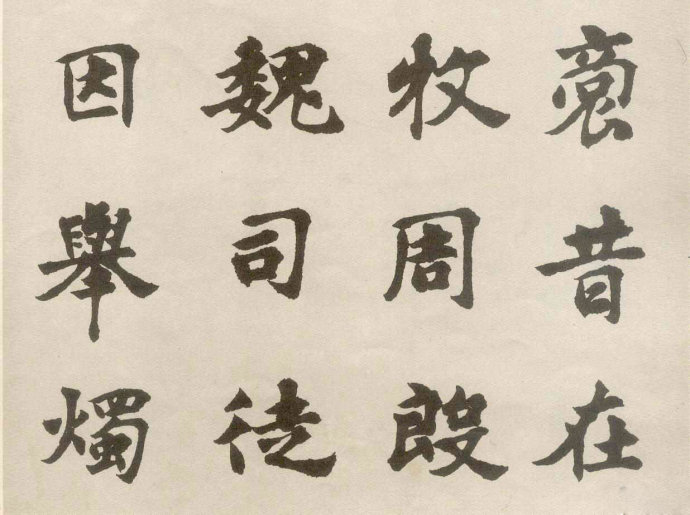 昔在
牧周殷
魏司徒
因舉燭